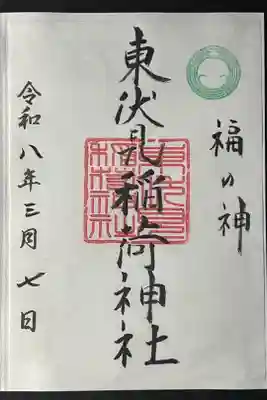 福の神
東伏見稲荷神社
令和八年三月七日